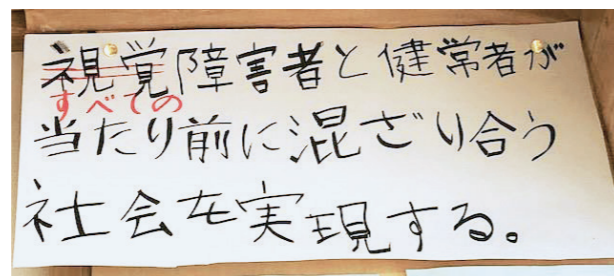 視覚障害者と健常者が
すべての
当たり前に混ざり合う
社会を実現する。